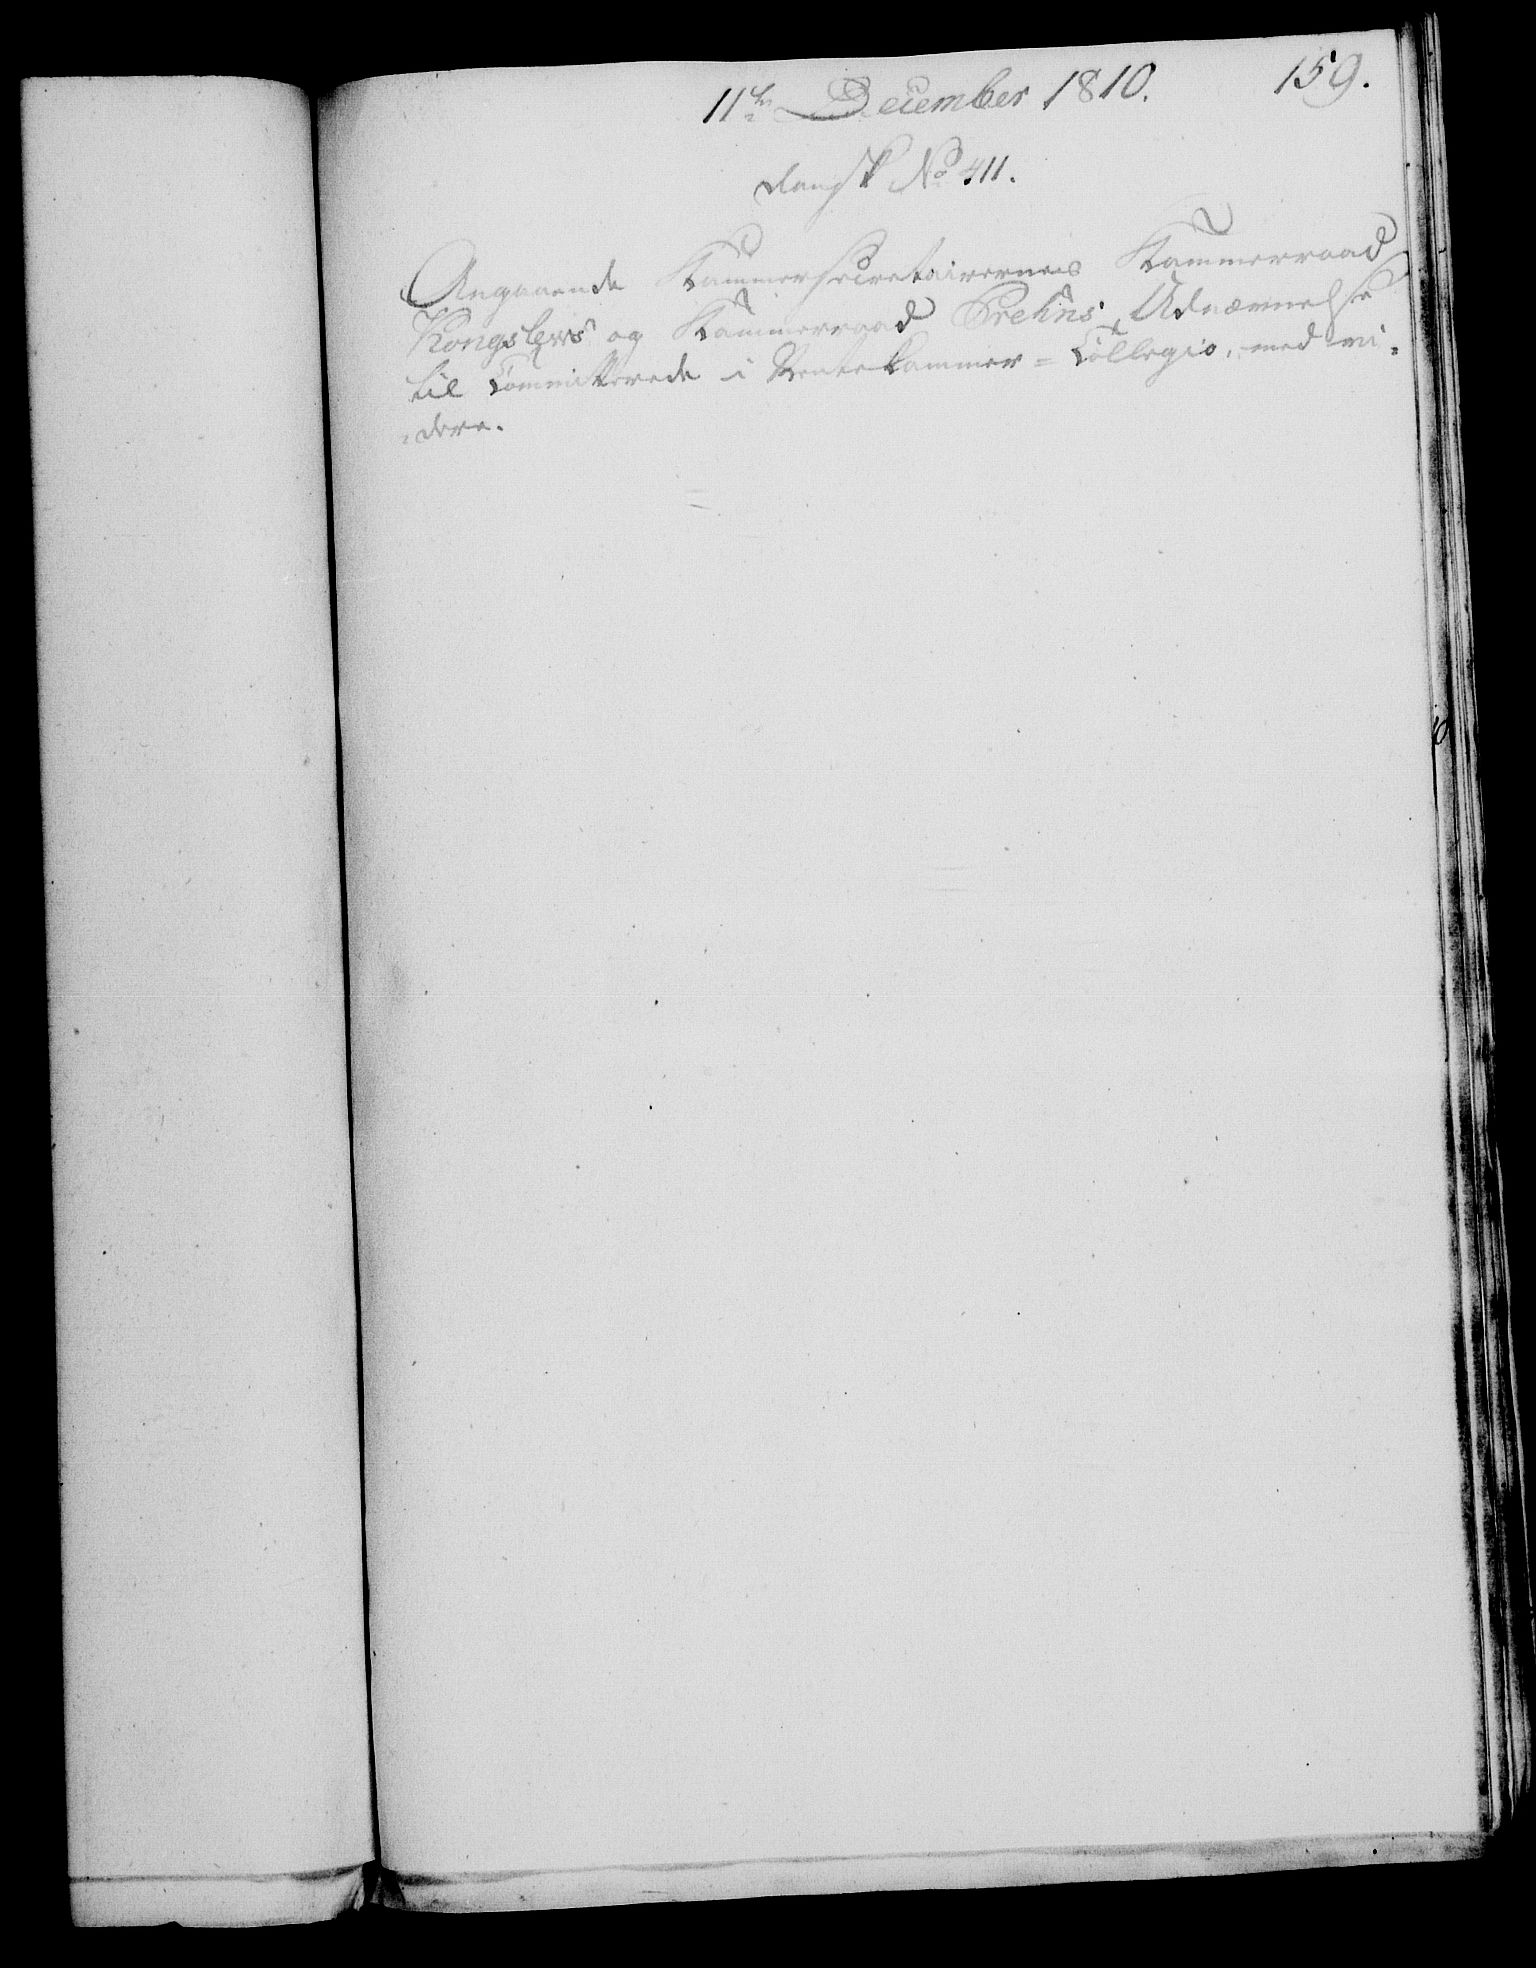 11te December 1810. 159.
dansk No 411.
Angaaende Kammersecretairernes Kammerraad
Kongslews og Kammerraad Prehns Udnævnelse
til Committerede i Rentekammer-Collegio, med vi-
-dere.